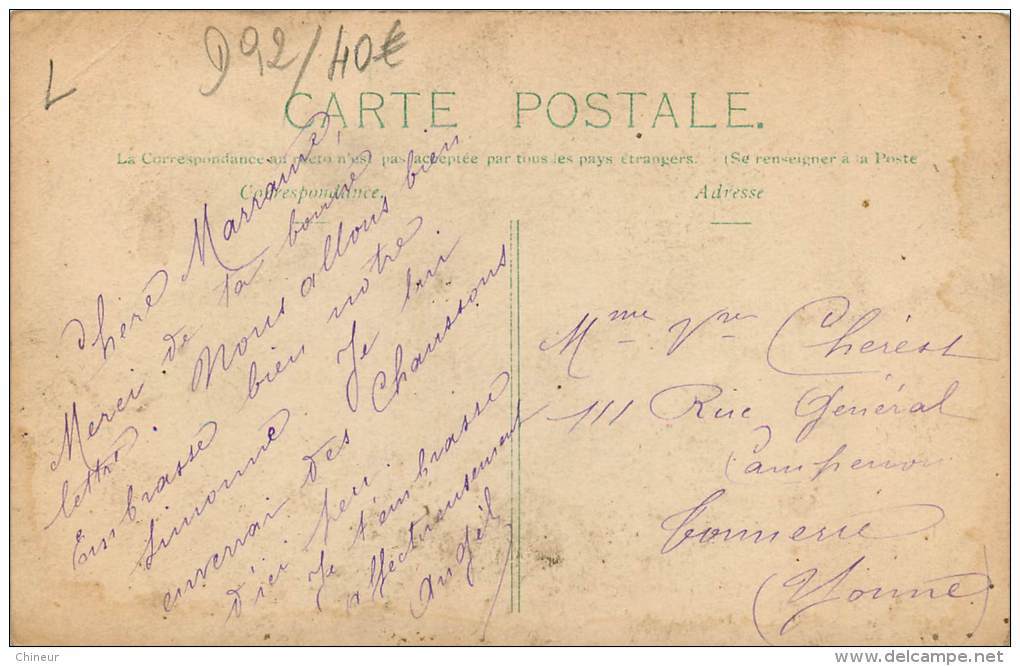 L
D92/40€
CARTE POSTALE.
La Correspondance au recto n'est pas acceptée par tous les pays étrangers. (Se renseigner à la Poste
Correspondance.
Adresse
Chère Marraine,
Merci de ta bonne
lettre. Nous allons bien
Embrasse bien notre
Simonne. Je lui
enverrai des chaussons
d'ici peu.
Je t'embrasse
affectueusement
Angèl
Mme Vve Chérest
111 Rue Général
Campenon
Tonnerre
(Yonne)
Chineur
www.delcampe.net